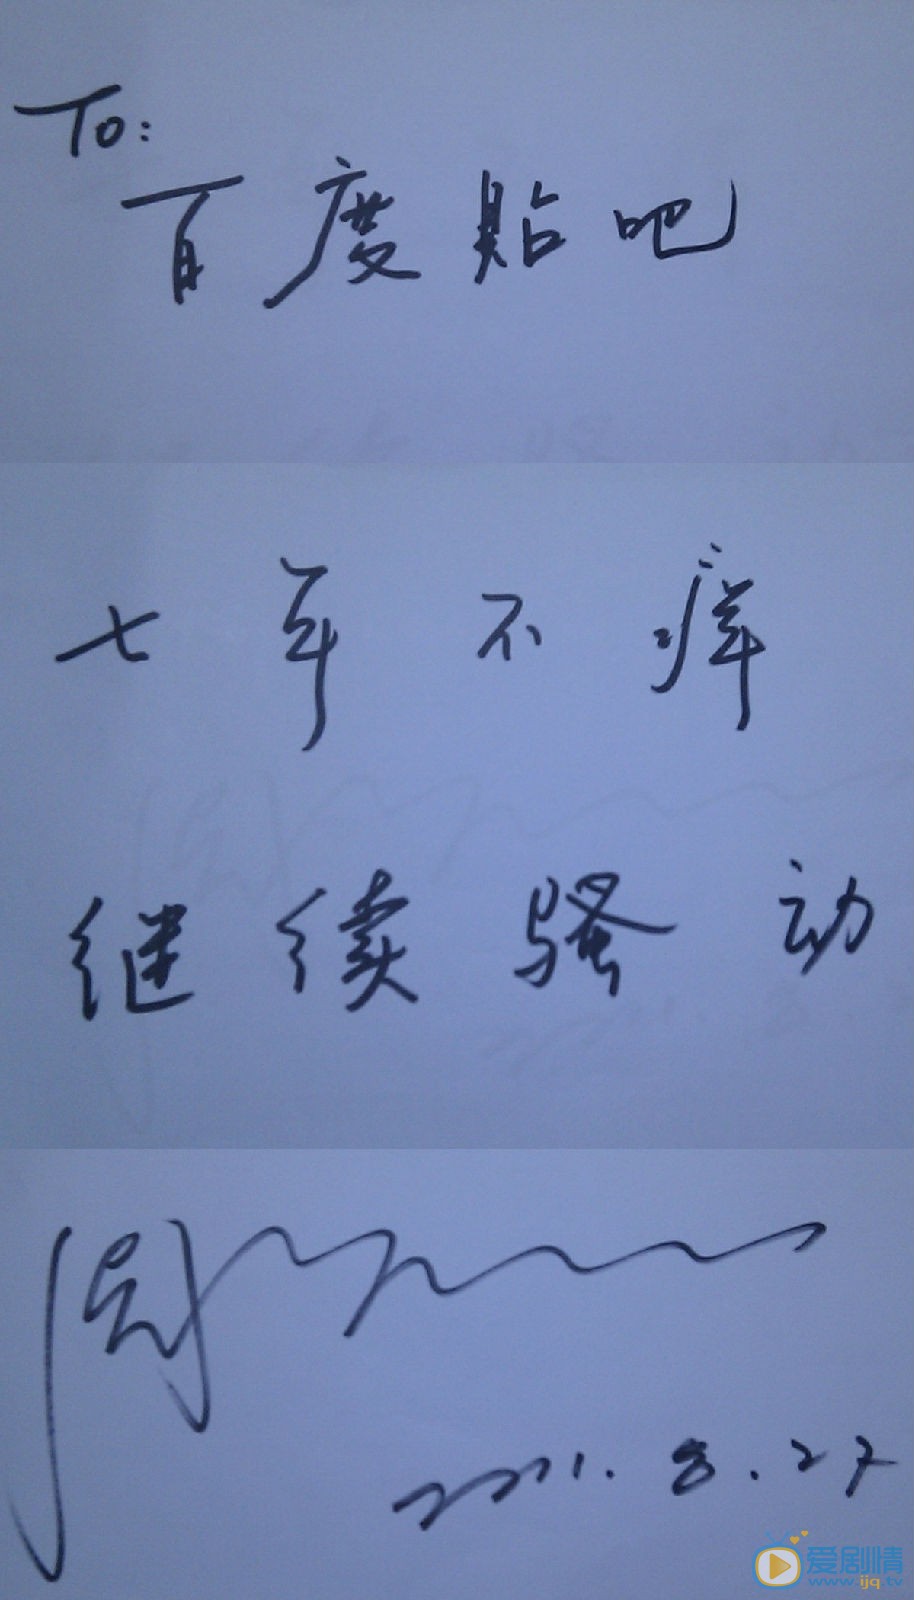 To:
百度贴吧
七年不痒
继续骚动
2011.8.27
爱剧情
www.ijq.tv